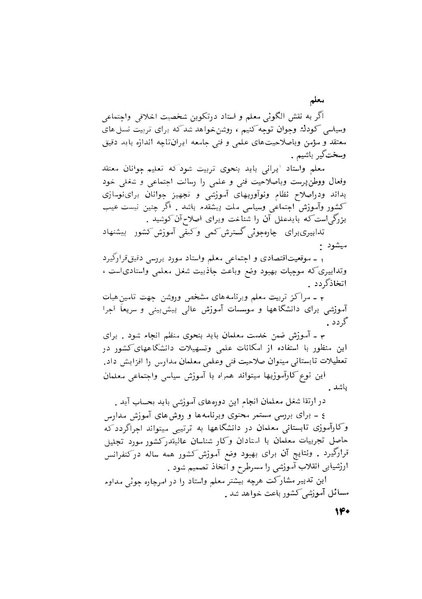 معلم
اگر به نقش الگوئی معلم و استاد درتکوین شخصیت اخلاقی واجتماعی
وسیاسی کودک وجوان توجه کنیم ، روشن خواهد شد که برای تربیت نسل های
معتقد و مؤمن وباصلاحیت‌های علمی و فنی جامعه ایران تاچه اندازه باید دقیق
وسخت گیر باشیم .
معلم واستاد ایرانی باید بنحوی تربیت شود که تعلیم جوانان معتقد
وفعال ووطن پرست وباصلاحیت فنی و علمی را رسالت اجتماعی و شغلی خود
بداند ودراصلاح نظام ونوآوریهای آموزشی و تجهیز جوانان برای نوسازی
کشور وآموزش اجتماعی وسیاسی ملت پیشقدم باشد . اگر چنین نیست عیب
بزرگی است که باید علل آن را شناخت وبرای اصلاح آن کوشید .
تدابیری برای چاره جوئی گسترش کمی و کیفی آموزش کشور پیشنهاد
میشود :
۱ ـ موقعیت اقتصادی و اجتماعی معلم واستاد مورد بررسی دقیق قرار گیرد
وتدابیری که موجبات بهبود وضع وباعث جاذبیت شغل معلمی واستادی است ،
اتخاذ گردد .
۲ ـ مراکز تربیت معلم وبرنامه‌های مشخص وروشن جهت تامین هیات
آموزشی برای دانشگاهها و موسسات آموزش عالی پیش بینی و سریعاً اجرا
گردد .
۳ ـ آموزش ضمن خدمت معلمان باید بنحوی منظم انجام شود . برای
این منظور با استفاده از امکانات علمی وتسهیلات دانشگاههای کشور در
تعطیلات تابستانی میتوان صلاحیت فنی وعلمی معلمان مدارس را افزایش داد.
این نوع کارآموزیها میتواند همراه با آموزش سیاسی واجتماعی معلمان
باشد .
در ارتقا شغل معلمان انجام این دوره‌های آموزشی باید بحساب آید .
٤ ـ برای بررسی مستمر محتوی وبرنامه‌ها و روش‌های آموزش مدارس
و کارآموزی تابستانی معلمان در دانشگاهها به ترتیبی میتواند اجرا گردد که
حاصل تجربیات معلمان با استادان و کارشناسان عالیقدر کشور مورد تحلیل
قرار گیرد . ونتایج آن برای بهبود وضع آموزش کشور همه ساله در کنفرانس
ارزشیابی انقلاب آموزشی را مسرطرح و اتخاذ تصمیم شود .
این تدبیر مشارکت هرچه بیشتر معلم واستاد را در امر چاره جوئی مداوم
مسائل آموزشی کشور باعث خواهد شد .
۱۴۰